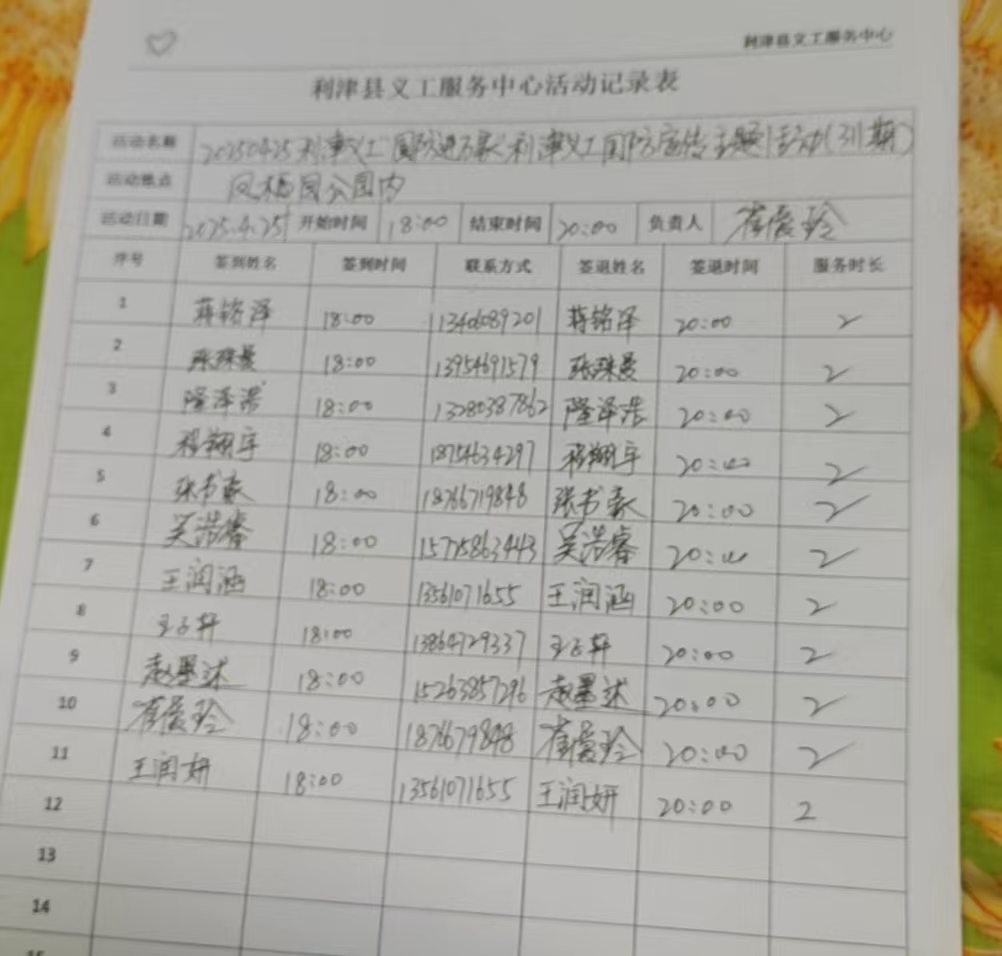 利津县义工服务中心
利津县义工服务中心活动记录表
活动名称 20250425利津义工"国防进万家"利津义工国防宣传主题活动(311期)
活动地点 凤栖园公园内
活动日期 2025.4.25 开始时间 18:00 结束时间 20:00 负责人 崔爱玲
序号 签到姓名 签到时间 联系方式 签退姓名 签退时间 服务时长
1 蒋铭泽 18:00 11340689201 蒋铭泽 20:00 2
2 张珠曼 18:00 13954691579 张珠曼 20:00 2
3 隆泽浩 18:00 13280387862 隆泽浩 20:00 2
4 程翔宇 18:00 18754634297 程翔宇 20:00 2
5 张书豪 18:00 18766719848 张书豪 20:00 2
6 吴浩睿 18:00 15775863443 吴浩睿 20:00 2
7 王润涵 18:00 13561071655 王润涵 20:00 2
8 王子轩 18:00 13864729337 王子轩 20:00 2
9 赵墨沭 18:00 15263857296 赵墨沭 20:00 2
10 崔爱玲 18:00 1876679848 崔爱玲 20:00 2
11 王润妍 18:00 13561071655 王润妍 20:00 2
12
13
14